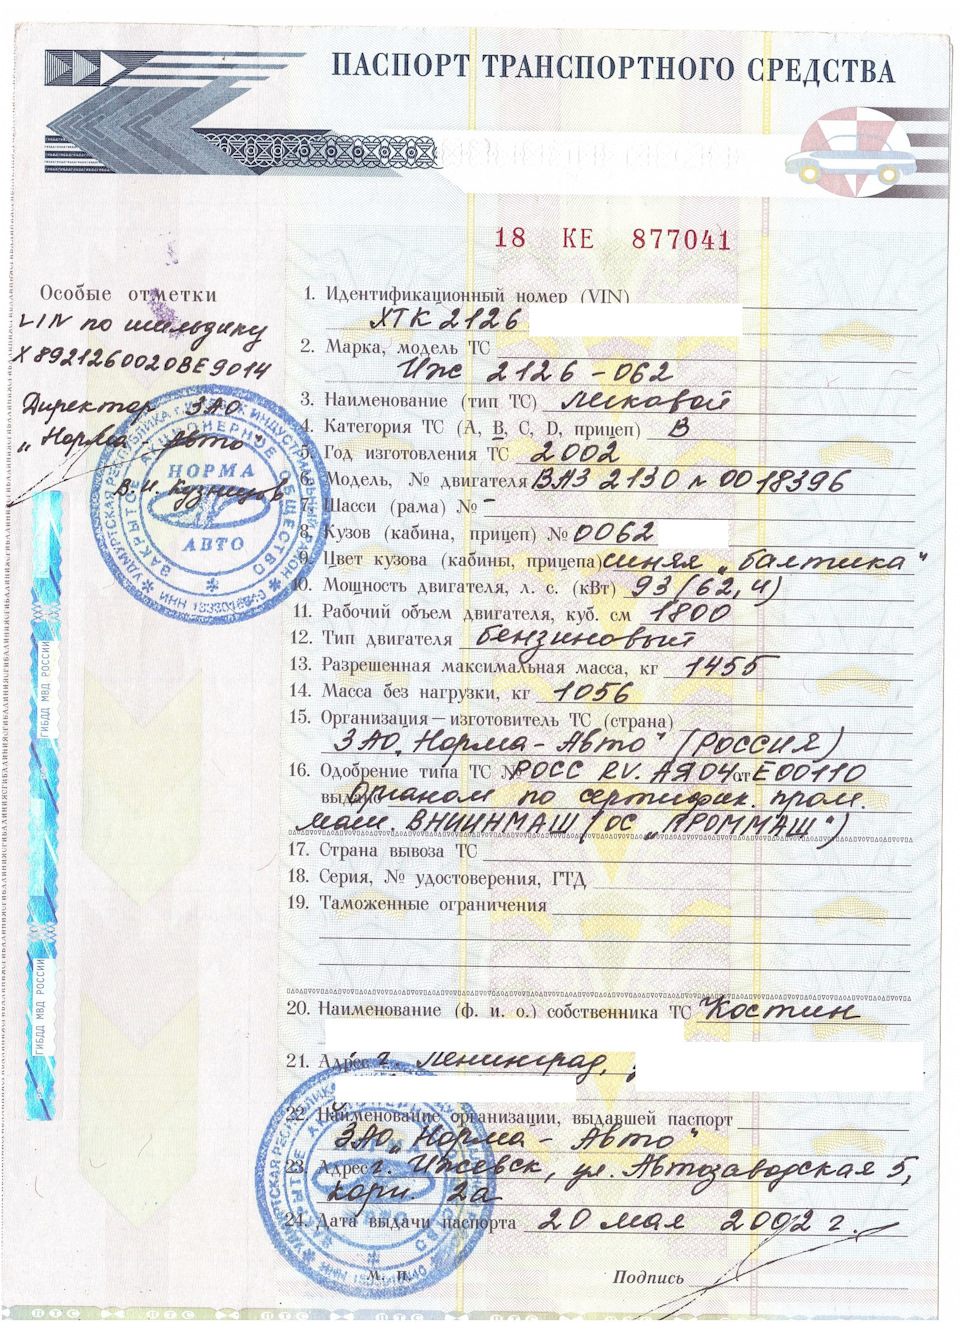 ПАСПОРТ ТРАНСПОРТНОГО СРЕДСТВА
18 КЕ 877041
Особые отметки
VIN по шильдику
X8921260020BE9014
Директор ЗАО
„Норма - Авто"
В. И. Кузнецов
НОРМА
АВТО
ЗАКРЫТОЕ АКЦИОНЕРНОЕ ОБЩЕСТВО
1. Идентификационный номер (VIN)
ХТК 2126
2. Марка, модель ТС
Иж 2126-062
3. Наименование (тип ТС) легковой
4. Категория ТС (A, B, C, D, прицеп) B
5. Год изготовления ТС 2002
6. Модель, № двигателя ВАЗ 2130 № 0018396
7. Шасси (рама) № -
8. Кузов (кабина, прицеп) № 0062
9. Цвет кузова (кабины, прицепа) синяя „балтика"
10. Мощность двигателя, л. с. (кВт) 93 (62,4)
11. Рабочий объем двигателя, куб. см 1800
12. Тип двигателя бензиновый
13. Разрешенная максимальная масса, кг 1455
14. Масса без нагрузки, кг 1056
15. Организация — изготовитель ТС (страна)
ЗАО „Норма - Авто" (РОССИЯ)
16. Одобрение типа ТС № РОСС RV. АЯ04 от Е00110
выдано Органом по сертифик. пром.
маш ВНИИНМАШ (ОС „ПРОММАШ")
17. Страна вывоза ТС
18. Серия, № удостоверения, ГТД
19. Таможенные ограничения
20. Наименование (ф. и. о.) собственника ТС Костин
21. Адрес г. Ленинград,
22. Наименование организации, выдавшей паспорт
ЗАО „Норма - Авто"
23. Адрес г. Ижевск, ул. Автозаводская 5,
корп. 2а
24. Дата выдачи паспорта 20 мая 2002 г.
М. П.
Подпись
ГИБДД МВД РОССИИ
ГИБДД МВД РОССИИ
ПТС